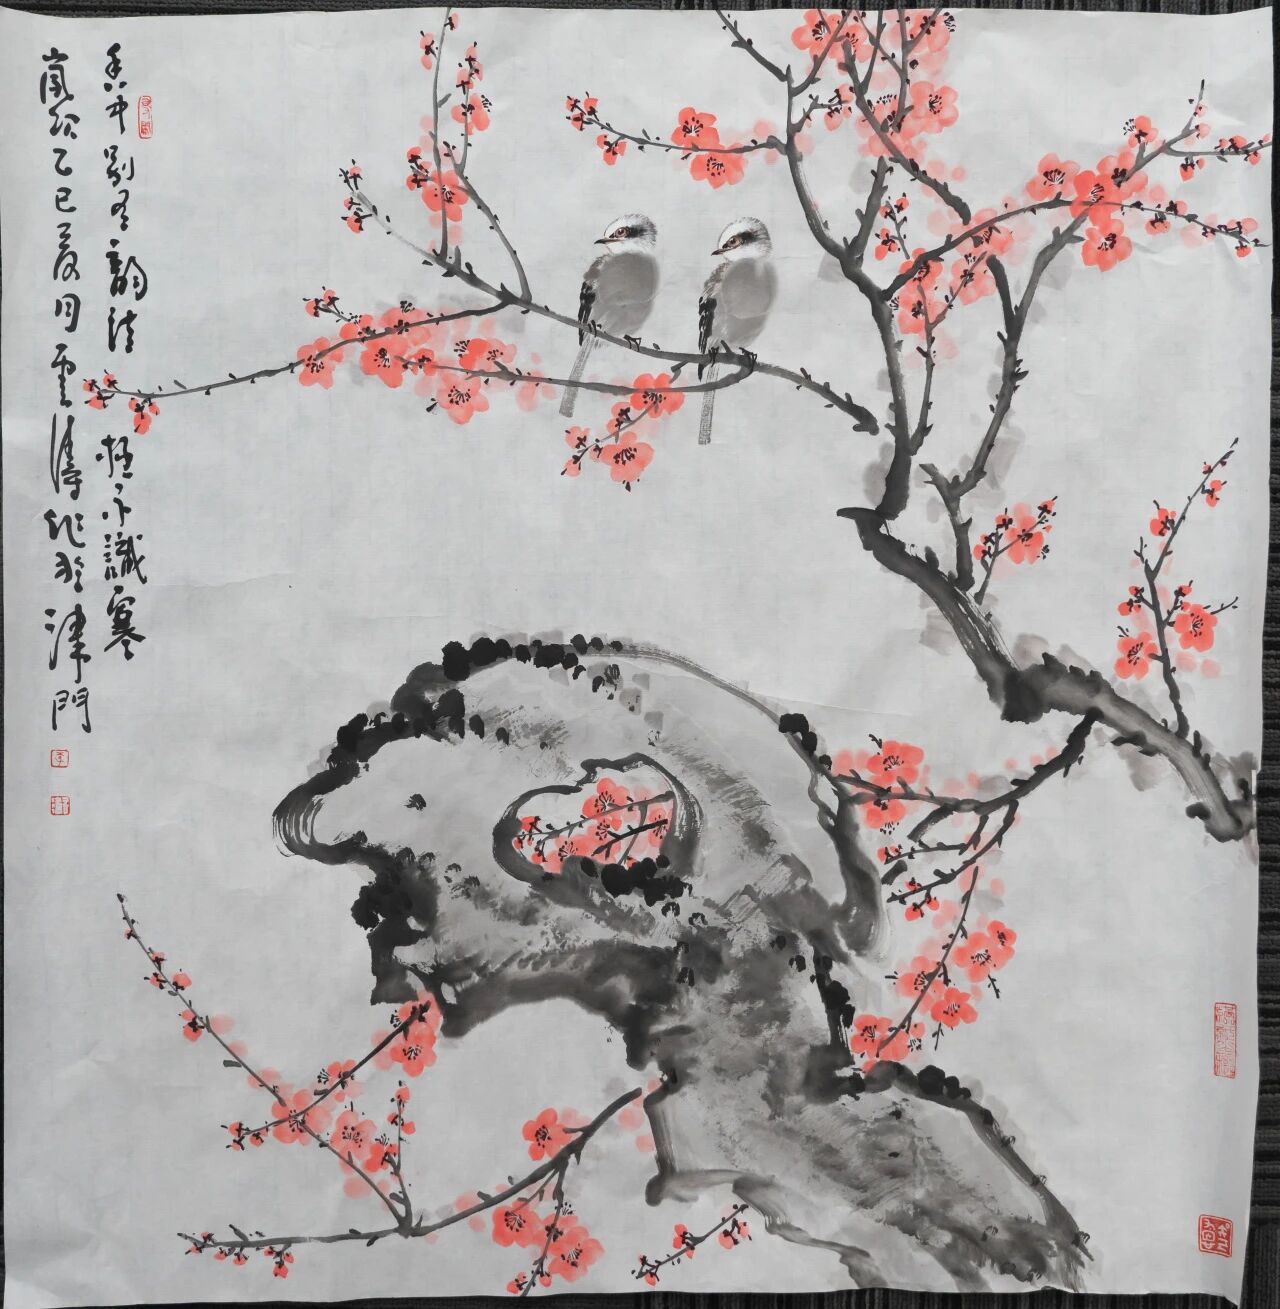 香中别有韵清极不识寒
嵗次乙巳夏月云涛作於津門